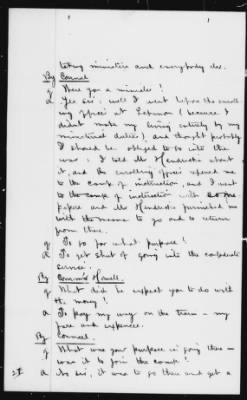 taking ministers and everybody else.
By Counsel
Q Were you a minister?
A Yes sir; well I went before the enroll
ing officer at Lebanon (because I
didnt make my living entirely by my
ministerial duties) and thought probably
I should be obliged to go into the
war; I told Mr Hendricks about
it, and the enrolling officer referred me
to the Camp of instruction, and I went
to the camp of instruction with
papers and Mr Hendricks furnished me
with the means to go and to return
from there.
Q To go for what purpose?
A To get shut of going into the confederate
service.
By Commr Howell.
Q What did he expect you to do with
the money?
A To pay my way on the train — my
fare and expenses.
By Counsel.
Q What was your purpose in going there —
was it to join the Camp?
A No sir, it was to go there and get a